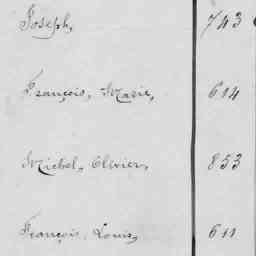 Joseph, 743
François, Marie, 614
Michel, Olivier, 853
François, Louis, 611